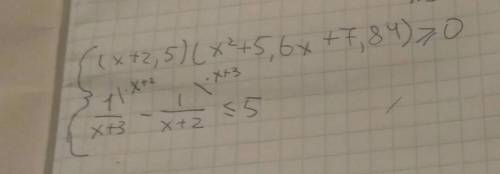 (x+2,5)(x²+5,6x+7,84)⩾0
1\·x+2/x+3 - 1\·x+3/x+2 ≤ 5